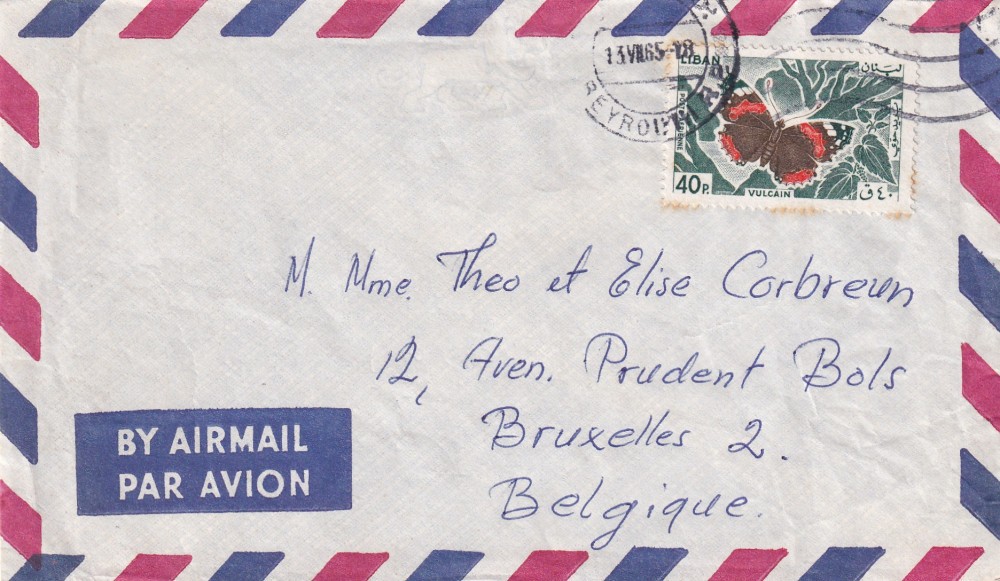 13 VII 65 - 18
BEYROUTH
LIBAN
لبنان
POSTE AERIENNE
بريد جوي
40 P.
VULCAIN
٤٠ ق
M. Mme. Theo et Elise Corbreun
12, Aven. Prudent Bols
Bruxelles 2.
Belgique.
BY AIRMAIL
PAR AVION